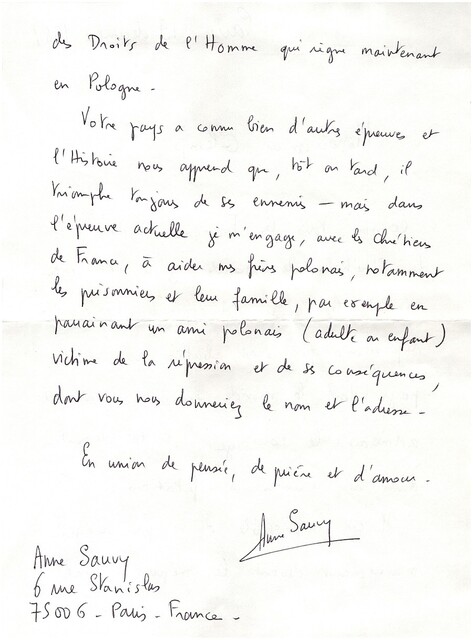 des Droits de l'Homme qui règne maintenant
en Pologne.
Votre pays a connu bien d'autres épreuves et
l'Histoire nous apprend que, tôt ou tard, il
triomphe toujours de ses ennemis — mais dans
l'épreuve actuelle je m'engage, avec les chrétiens
de France, à aider mes frères polonais, notamment
les prisonniers et leur famille, par exemple en
parrainant un ami polonais (adulte ou enfant)
victime de la répression et de ses conséquences,
dont vous nous donneriez le nom et l'adresse -
En union de pensée, de prière et d'amour.
Anne Sauvy
Anne Sauvy
6 rue Stanislas
75006 - Paris - France -